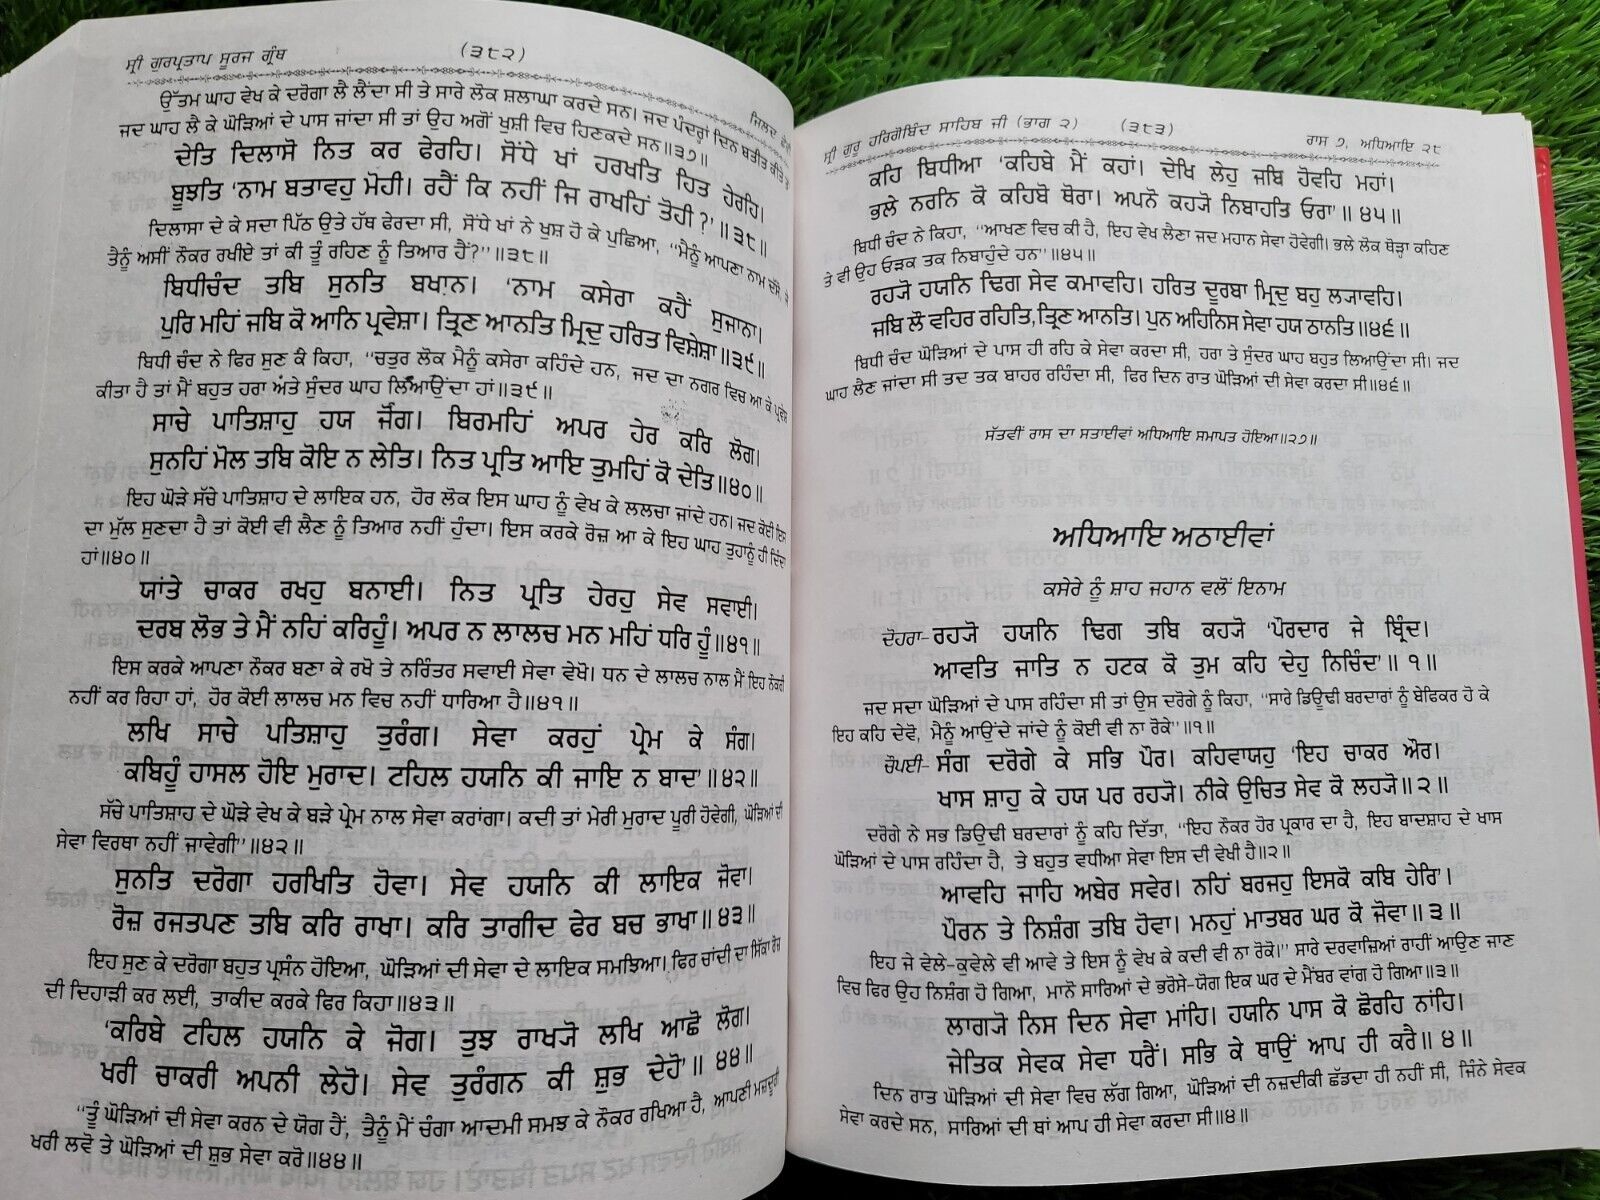 ਸ੍ਰੀ ਗੁਰਪ੍ਰਤਾਪ ਸੂਰਜ ਗ੍ਰੰਥ (੩੮੨) ਜਿਲਦ
ਉੱਤਮ ਘਾਹ ਵੇਖ ਕੇ ਦਰੋਗਾ ਲੈ ਲੈਂਦਾ ਸੀ ਤੇ ਸਾਰੇ ਲੋਕ ਸ਼ਲਾਘਾ ਕਰਦੇ ਸਨ। ਜਦ ਪੰਦਰ੍ਹਾਂ ਦਿਨ ਬਤੀਤ ਕੀਤੇ
ਜਦ ਘਾਹ ਲੈ ਕੇ ਘੋੜਿਆਂ ਦੇ ਪਾਸ ਜਾਂਦਾ ਸੀ ਤਾਂ ਉਹ ਅਗੋਂ ਖੁਸ਼ੀ ਵਿਚ ਹਿਣਕਦੇ ਸਨ॥੩੭॥
ਦੇਤਿ ਦਿਲਾਸੋ ਨਿਤ ਕਰ ਫੇਰਹਿ। ਸੋਂਧੇ ਖਾਂ ਹਰਖਤਿ ਹਿਤ ਹੇਰਹਿ।
ਬੂਝਤਿ ‘ਨਾਮ ਬਤਾਵਹੁ ਮੋਹੀ। ਰਹੈਂ ਕਿ ਨਹੀਂ ਜਿ ਰਾਖਹਿਂ ਤੋਹੀ?’॥੩੮॥
ਦਿਲਾਸਾ ਦੇ ਕੇ ਸਦਾ ਪਿੱਠ ਉਤੇ ਹੱਥ ਫੇਰਦਾ ਸੀ, ਸੋਂਧੇ ਖਾਂ ਨੇ ਖੁਸ਼ ਹੋ ਕੇ ਪੁਛਿਆ, “ਮੈਨੂੰ ਆਪਣਾ ਨਾਮ ਦੱਸੋ, ਜੇ
ਤੈਨੂੰ ਅਸੀਂ ਨੌਕਰ ਰਖੀਏ ਤਾਂ ਕੀ ਤੂੰ ਰਹਿਣ ਨੂੰ ਤਿਆਰ ਹੈਂ?”॥੩੮॥
ਬਿਧੀਚੰਦ ਤਬਿ ਸੁਨਤਿ ਬਖਾਨਾ। ‘ਨਾਮ ਕਸੇਰਾ ਕਹੈਂ ਸੁਜਾਨਾ।
ਪੁਰਿ ਮਹਿਂ ਜਬਿ ਕੋ ਆਨਿ ਪ੍ਰਵੇਸ਼ਾ। ਤ੍ਰਿਣ ਆਨਤਿ ਮ੍ਰਿਦੁ ਹਰਿਤ ਵਿਸ਼ੇਸ਼ਾ॥੩੯॥
ਬਿਧੀ ਚੰਦ ਨੇ ਫਿਰ ਸੁਣ ਕੇ ਕਿਹਾ, “ਚਤੁਰ ਲੋਕ ਮੈਨੂੰ ਕਸੇਰਾ ਕਹਿੰਦੇ ਹਨ, ਜਦ ਦਾ ਨਗਰ ਵਿਚ ਆ ਕੇ ਪ੍ਰਵੇਸ਼
ਕੀਤਾ ਹੈ ਤਾਂ ਮੈਂ ਬਹੁਤ ਹਰਾ ਅਤੇ ਸੁੰਦਰ ਘਾਹ ਲਿਆਉਂਦਾ ਹਾਂ॥੩੯॥
ਸਾਚੇ ਪਾਤਿਸ਼ਾਹੁ ਹਯ ਜੋਗ। ਬਿਰਮਹਿਂ ਅਪਰ ਹੇਰ ਕਰਿ ਲੋਗ।
ਸੁਨਹਿਂ ਮੋਲ ਤਬਿ ਕੋਇ ਨ ਲੇਤਿ। ਨਿਤ ਪ੍ਰਤਿ ਆਇ ਤੁਮਹਿਂ ਕੋ ਦੇਤਿ॥੪੦॥
ਇਹ ਘੋੜੇ ਸੱਚੇ ਪਾਤਿਸ਼ਾਹ ਦੇ ਲਾਇਕ ਹਨ, ਹੋਰ ਲੋਕ ਇਸ ਘਾਹ ਨੂੰ ਵੇਖ ਕੇ ਲਲਚਾ ਜਾਂਦੇ ਹਨ। ਜਦ ਕੋਈ ਇਸ
ਦਾ ਮੁੱਲ ਸੁਣਦਾ ਹੈ ਤਾਂ ਕੋਈ ਵੀ ਲੈਣ ਨੂੰ ਤਿਆਰ ਨਹੀਂ ਹੁੰਦਾ। ਇਸ ਕਰਕੇ ਰੋਜ਼ ਆ ਕੇ ਇਹ ਘਾਹ ਤੁਹਾਨੂੰ ਹੀ ਦਿੰਦਾ
ਹਾਂ॥੪੦॥
ਯਾਂਤੇ ਚਾਕਰ ਰਖਹੁ ਬਨਾਈ। ਨਿਤ ਪ੍ਰਤਿ ਹੇਰਹੁ ਸੇਵ ਸਵਾਈ।
ਦਰਬ ਲੋਭ ਤੇ ਮੈਂ ਨਹਿਂ ਕਰਿਹੂੰ। ਅਪਰ ਨ ਲਾਲਚ ਮਨ ਮਹਿਂ ਧਰਿ ਹੂੰ॥੪੧॥
ਇਸ ਕਰਕੇ ਆਪਣਾ ਨੌਕਰ ਬਣਾ ਕੇ ਰਖੋ ਤੇ ਨਰਿੰਤਰ ਸਵਾਈ ਸੇਵਾ ਵੇਖੋ। ਧਨ ਦੇ ਲਾਲਚ ਨਾਲ ਮੈਂ ਇਹ ਨੌਕਰੀ
ਨਹੀਂ ਕਰ ਰਿਹਾ ਹਾਂ, ਹੋਰ ਕੋਈ ਲਾਲਚ ਮਨ ਵਿਚ ਨਹੀਂ ਧਾਰਿਆ ਹੈ॥੪੧॥
ਲਖਿ ਸਾਚੇ ਪਤਿਸ਼ਾਹੁ ਤੁਰੰਗ। ਸੇਵਾ ਕਰਹੁਂ ਪ੍ਰੇਮ ਕੇ ਸੰਗ।
ਕਬਿਹੂੰ ਹਾਸਲ ਹੋਇ ਮੁਰਾਦ। ਟਹਿਲ ਹਯਨਿ ਕੀ ਜਾਇ ਨ ਬਾਦ’॥੪੨॥
ਸੱਚੇ ਪਾਤਿਸ਼ਾਹ ਦੇ ਘੋੜੇ ਵੇਖ ਕੇ ਬੜੇ ਪ੍ਰੇਮ ਨਾਲ ਸੇਵਾ ਕਰਾਂਗਾ। ਕਦੀ ਤਾਂ ਮੇਰੀ ਮੁਰਾਦ ਪੂਰੀ ਹੋਵੇਗੀ, ਘੋੜਿਆਂ ਦੀ
ਸੇਵਾ ਵਿਰਥਾ ਨਹੀਂ ਜਾਵੇਗੀ”॥੪੨॥
ਸੁਨਤਿ ਦਰੋਗਾ ਹਰਖਿਤਿ ਹੋਵਾ। ਸੇਵ ਹਯਨਿ ਕੀ ਲਾਇਕ ਜੋਵਾ।
ਰੋਜ਼ ਰਜਤਪਣ ਤਬਿ ਕਰਿ ਰਾਖਾ। ਕਰਿ ਤਾਗੀਦ ਫੇਰ ਬਚ ਭਾਖਾ॥੪੩॥
ਇਹ ਸੁਣ ਕੇ ਦਰੋਗਾ ਬਹੁਤ ਪ੍ਰਸੰਨ ਹੋਇਆ, ਘੋੜਿਆਂ ਦੀ ਸੇਵਾ ਦੇ ਲਾਇਕ ਸਮਝਿਆ। ਫਿਰ ਚਾਂਦੀ ਦਾ ਸਿੱਕਾ ਰੋਜ਼
ਦੀ ਦਿਹਾੜੀ ਕਰ ਲਈ, ਤਾਕੀਦ ਕਰਕੇ ਫਿਰ ਕਿਹਾ॥੪੩॥
‘ਕਰਿਬੇ ਟਹਿਲ ਹਯਨਿ ਕੇ ਜੋਗ। ਤੁਝ ਰਾਖ੍ਯੋ ਲਖਿ ਆਛੋ ਲੋਗ।
ਖਰੀ ਚਾਕਰੀ ਅਪਨੀ ਲੇਹੋ। ਸੇਵ ਤੁਰੰਗਨ ਕੀ ਸ਼ੁਭ ਦੇਹੋ’॥੪੪॥
“ਤੂੰ ਘੋੜਿਆਂ ਦੀ ਸੇਵਾ ਕਰਨ ਦੇ ਯੋਗ ਹੈਂ, ਤੈਨੂੰ ਮੈਂ ਚੰਗਾ ਆਦਮੀ ਸਮਝ ਕੇ ਨੌਕਰ ਰਖਿਆ ਹੈ, ਆਪਣੀ ਮਜ਼ਦੂਰੀ
ਖਰੀ ਲਵੋ ਤੇ ਘੋੜਿਆਂ ਦੀ ਸ਼ੁਭ ਸੇਵਾ ਕਰੋ॥੪੪॥
ਸ੍ਰੀ ਗੁਰੂ ਹਰਿਗੋਬਿੰਦ ਸਾਹਿਬ ਜੀ (ਭਾਗ ੨) (੩੮੩) ਰਾਸ ੭, ਅਧਿਆਇ ੨੮
ਕਹਿ ਬਿਧੀਆ ‘ਕਹਿਬੇ ਮੈਂ ਕਹਾਂ। ਦੇਖਿ ਲੇਹੁ ਜਬਿ ਹੋਵਹਿ ਮਹਾਂ।
ਭਲੇ ਨਰਨਿ ਕੋ ਕਹਿਬੋ ਥੋਰਾ। ਅਪਨੋ ਕਹ੍ਯੋ ਨਿਬਾਹਤਿ ਓਰਾ’॥੪੫॥
ਬਿਧੀ ਚੰਦ ਨੇ ਕਿਹਾ, “ਆਖਣ ਵਿਚ ਕੀ ਹੈ, ਇਹ ਵੇਖ ਲੈਣਾ ਜਦ ਮਹਾਨ ਸੇਵਾ ਹੋਵੇਗੀ। ਭਲੇ ਲੋਕ ਥੋੜ੍ਹਾ ਕਹਿਣ
ਤੇ ਵੀ ਉਹ ਓੜਕ ਤਕ ਨਿਬਾਹੁੰਦੇ ਹਨ”॥੪੫॥
ਰਹ੍ਯੋ ਹਯਨਿ ਢਿਗ ਸੇਵ ਕਮਾਵਹਿ। ਹਰਿਤ ਦੂਰਬਾ ਮ੍ਰਿਦੁ ਬਹੁ ਲ੍ਯਾਵਹਿ।
ਜਬਿ ਲੌ ਵਹਿਰ ਰਹਿਤਿ,ਤ੍ਰਿਣ ਆਨਤਿ। ਪੁਨ ਅਹਿਨਿਸ ਸੇਵਾ ਹਯ ਠਾਨਤਿ॥੪੬॥
ਬਿਧੀ ਚੰਦ ਘੋੜਿਆਂ ਦੇ ਪਾਸ ਹੀ ਰਹਿ ਕੇ ਸੇਵਾ ਕਰਦਾ ਸੀ, ਹਰਾ ਤੇ ਸੁੰਦਰ ਘਾਹ ਬਹੁਤ ਲਿਆਉਂਦਾ ਸੀ। ਜਦ
ਘਾਹ ਲੈਣ ਜਾਂਦਾ ਸੀ ਤਦ ਤਕ ਬਾਹਰ ਰਹਿੰਦਾ ਸੀ, ਫਿਰ ਦਿਨ ਰਾਤ ਘੋੜਿਆਂ ਦੀ ਸੇਵਾ ਕਰਦਾ ਸੀ॥੪੬॥
ਸੱਤਵੀਂ ਰਾਸ ਦਾ ਸਤਾਈਵਾਂ ਅਧਿਆਇ ਸਮਾਪਤ ਹੋਇਆ॥੨੭॥
ਅਧਿਆਇ ਅਠਾਈਵਾਂ
ਕਸੇਰੇ ਨੂੰ ਸ਼ਾਹ ਜਹਾਨ ਵਲੋਂ ਇਨਾਮ
ਦੋਹਰਾ- ਰਹ੍ਯੋ ਹਯਨਿ ਢਿਗ ਤਬਿ ਕਹ੍ਯੋ ‘ਪੌਰਦਾਰ ਜੇ ਬ੍ਰਿੰਦ।
ਆਵਤਿ ਜਾਤਿ ਨ ਹਟਕ ਕੋ ਤੁਮ ਕਹਿ ਦੇਹੁ ਨਿਚਿੰਦ’॥੧॥
ਜਦ ਸਦਾ ਘੋੜਿਆਂ ਦੇ ਪਾਸ ਰਹਿੰਦਾ ਸੀ ਤਾਂ ਉਸ ਦਰੋਗੇ ਨੂੰ ਕਿਹਾ, “ਸਾਰੇ ਡਿਉਢੀ ਬਰਦਾਰਾਂ ਨੂੰ ਬੇਫਿਕਰ ਹੋ ਕੇ
ਇਹ ਕਹਿ ਦੇਵੋ, ਮੈਨੂੰ ਆਉਂਦੇ ਜਾਂਦੇ ਨੂੰ ਕੋਈ ਵੀ ਨਾ ਰੋਕੇ”॥੧॥
ਚੌਪਈ- ਸੰਗ ਦਰੋਗੇ ਕੇ ਸਭਿ ਪੌਰ। ਕਹਿਵਾਯਹੁ ‘ਇਹ ਚਾਕਰ ਔਰ।
ਖਾਸ ਸ਼ਾਹੁ ਕੇ ਹਯ ਪਰ ਰਹ੍ਯੋ। ਨੀਕੇ ਉਚਿਤ ਸੇਵ ਕੋ ਲਹ੍ਯੋ॥੨॥
ਦਰੋਗੇ ਨੇ ਸਭ ਡਿਉਢੀ ਬਰਦਾਰਾਂ ਨੂੰ ਕਹਿ ਦਿੱਤਾ, “ਇਹ ਨੌਕਰ ਹੋਰ ਪ੍ਰਕਾਰ ਦਾ ਹੈ, ਇਹ ਬਾਦਸ਼ਾਹ ਦੇ ਖਾਸ
ਘੋੜਿਆਂ ਦੇ ਪਾਸ ਰਹਿੰਦਾ ਹੈ, ਤੇ ਬਹੁਤ ਵਧੀਆ ਸੇਵਾ ਇਸ ਦੀ ਵੇਖੀ ਹੈ॥੨॥
ਆਵਹਿ ਜਾਹਿ ਅਬੇਰ ਸਵੇਰ। ਨਹਿਂ ਬਰਜਹੁ ਇਸਕੋ ਕਬਿ ਹੇਰਿ’।
ਪੌਰਨ ਤੇ ਨਿਸ਼ੰਗ ਤਬਿ ਹੋਵਾ। ਮਨਹੁਂ ਮਾਤਬਰ ਘਰ ਕੋ ਜੋਵਾ॥੩॥
ਇਹ ਜੇ ਵੇਲੇ-ਕੁਵੇਲੇ ਵੀ ਆਵੇ ਤੇ ਇਸ ਨੂੰ ਵੇਖ ਕੇ ਕਦੀ ਵੀ ਨਾ ਰੋਕੋ।” ਸਾਰੇ ਦਰਵਾਜ਼ਿਆਂ ਰਾਹੀਂ ਆਉਣ ਜਾਣ
ਵਿਚ ਫਿਰ ਉਹ ਨਿਸ਼ੰਗ ਹੋ ਗਿਆ, ਮਾਨੋ ਸਾਰਿਆਂ ਦੇ ਭਰੋਸੇ-ਯੋਗ ਇਕ ਘਰ ਦੇ ਮੈਂਬਰ ਵਾਂਗ ਹੋ ਗਿਆ॥੩॥
ਲਾਗ੍ਯੋ ਨਿਸ ਦਿਨ ਸੇਵਾ ਮਾਂਹਿ। ਹਯਨਿ ਪਾਸ ਕੋ ਛੋਰਹਿ ਨਾਂਹਿ।
ਜੇਤਿਕ ਸੇਵਕ ਸੇਵਾ ਧਰੈਂ। ਸਭਿ ਕੇ ਥਾਉਂ ਆਪ ਹੀ ਕਰੈ॥੪॥
ਦਿਨ ਰਾਤ ਘੋੜਿਆਂ ਦੀ ਸੇਵਾ ਵਿਚ ਲੱਗ ਗਿਆ, ਘੋੜਿਆਂ ਦੀ ਨਜ਼ਦੀਕੀ ਛੱਡਦਾ ਹੀ ਨਹੀਂ ਸੀ, ਜਿੰਨੇ ਸੇਵਕ
ਸੇਵਾ ਕਰਦੇ ਸਨ, ਸਾਰਿਆਂ ਦੀ ਥਾਂ ਆਪ ਹੀ ਸੇਵਾ ਕਰਦਾ ਸੀ॥੪॥